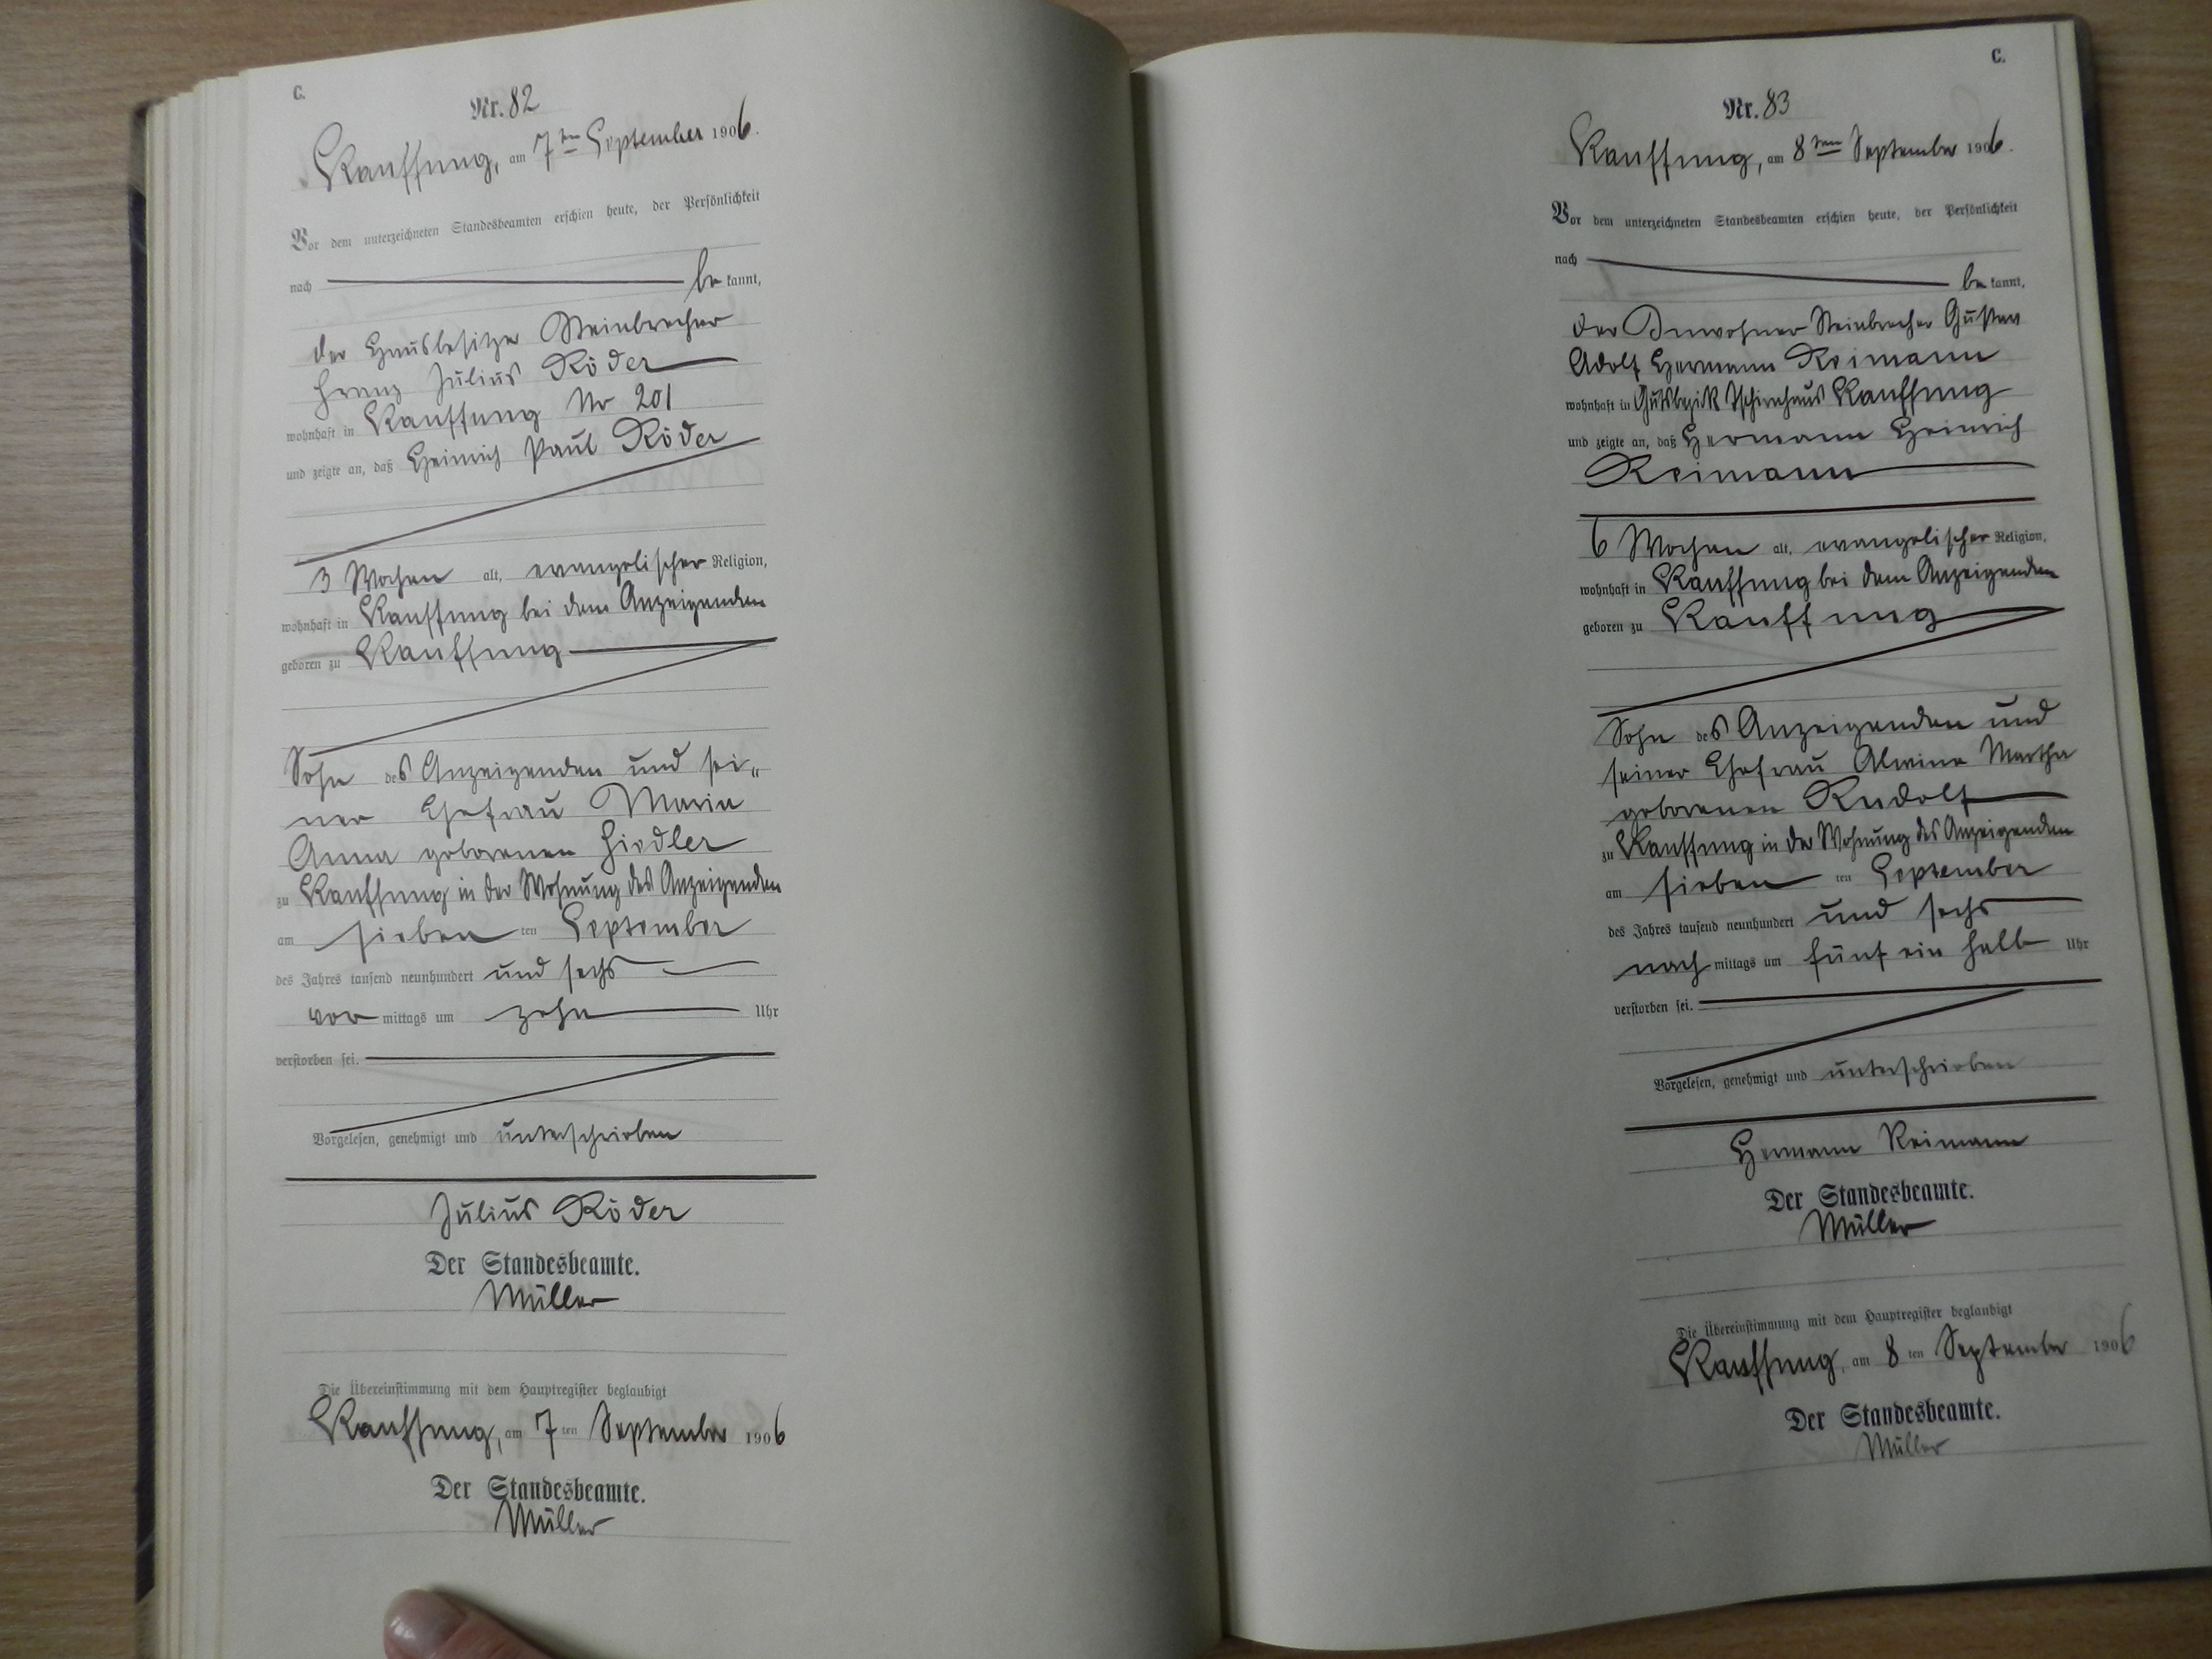 C.
Nr. 82
Kauffung, am 7ten September 1906.
Vor dem unterzeichneten Standesbeamten erschien heute, der Persönlichkeit
nach be kannt,
der Hausbesitzer Steinbrecher
Franz Julius Röder
wohnhaft in Kauffung No 201
und zeigte an, daß Heinrich Paul Röder
3 Wochen alt, evangelischer Religion,
wohnhaft in Kauffung bei dem Anzeigenden
geboren zu Kauffung
Sohn des Anzeigenden und sei„
ner Ehefrau Maria
Anna geborenen Fiedler
zu Kauffung in der Wohnung des Anzeigenden
am sieben ten September
des Jahres tausend neunhundert und sechs
vor mittags um zehn Uhr
verstorben sei.
Vorgelesen, genehmigt und unterschrieben
Julius Röder
Der Standesbeamte.
Müller
Die Übereinstimmung mit dem Hauptregister beglaubigt
Kauffung, am 7 ten September 1906
Der Standesbeamte.
Müller
C.
Nr. 83
Kauffung, am 8ten September 1906.
Vor dem unterzeichneten Standesbeamten erschien heute, der Persönlichkeit
nach be kannt,
der Inwohner Steinbrecher Gustav
Adolf Hermann Reimann
wohnhaft in Gutsbezirk Tschirnhaus Kauffung
und zeigte an, daß Hermann Heinrich
Reimann
6 Wochen alt, evangelischer Religion,
wohnhaft in Kauffung bei dem Anzeigenden
geboren zu Kauffung
Sohn des Anzeigenden und
seiner Ehefrau Alwine Martha
geborenen Rudolf
zu Kauffung in der Wohnung des Anzeigenden
am sieben ten September
des Jahres tausend neunhundert und sechs
nach mittags um fünf ein halb Uhr
verstorben sei.
Vorgelesen, genehmigt und unterschrieben
Hermann Reimann
Der Standesbeamte.
Müller
Die Übereinstimmung mit dem Hauptregister beglaubigt
Kauffung, am 8 ten September 1906
Der Standesbeamte.
Müller